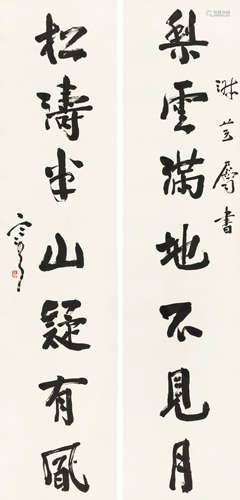 梨雲滿地不見月
松濤半山疑有風
屬書